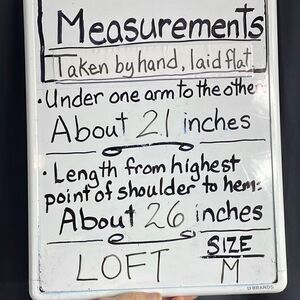 Measurements
Taken by hand, laid flat.
• Under one arm to the other
About 21 inches
• Length from highest
point of shoulder to hem:
About 26 inches
SIZE
LOFT M
U BRANDS